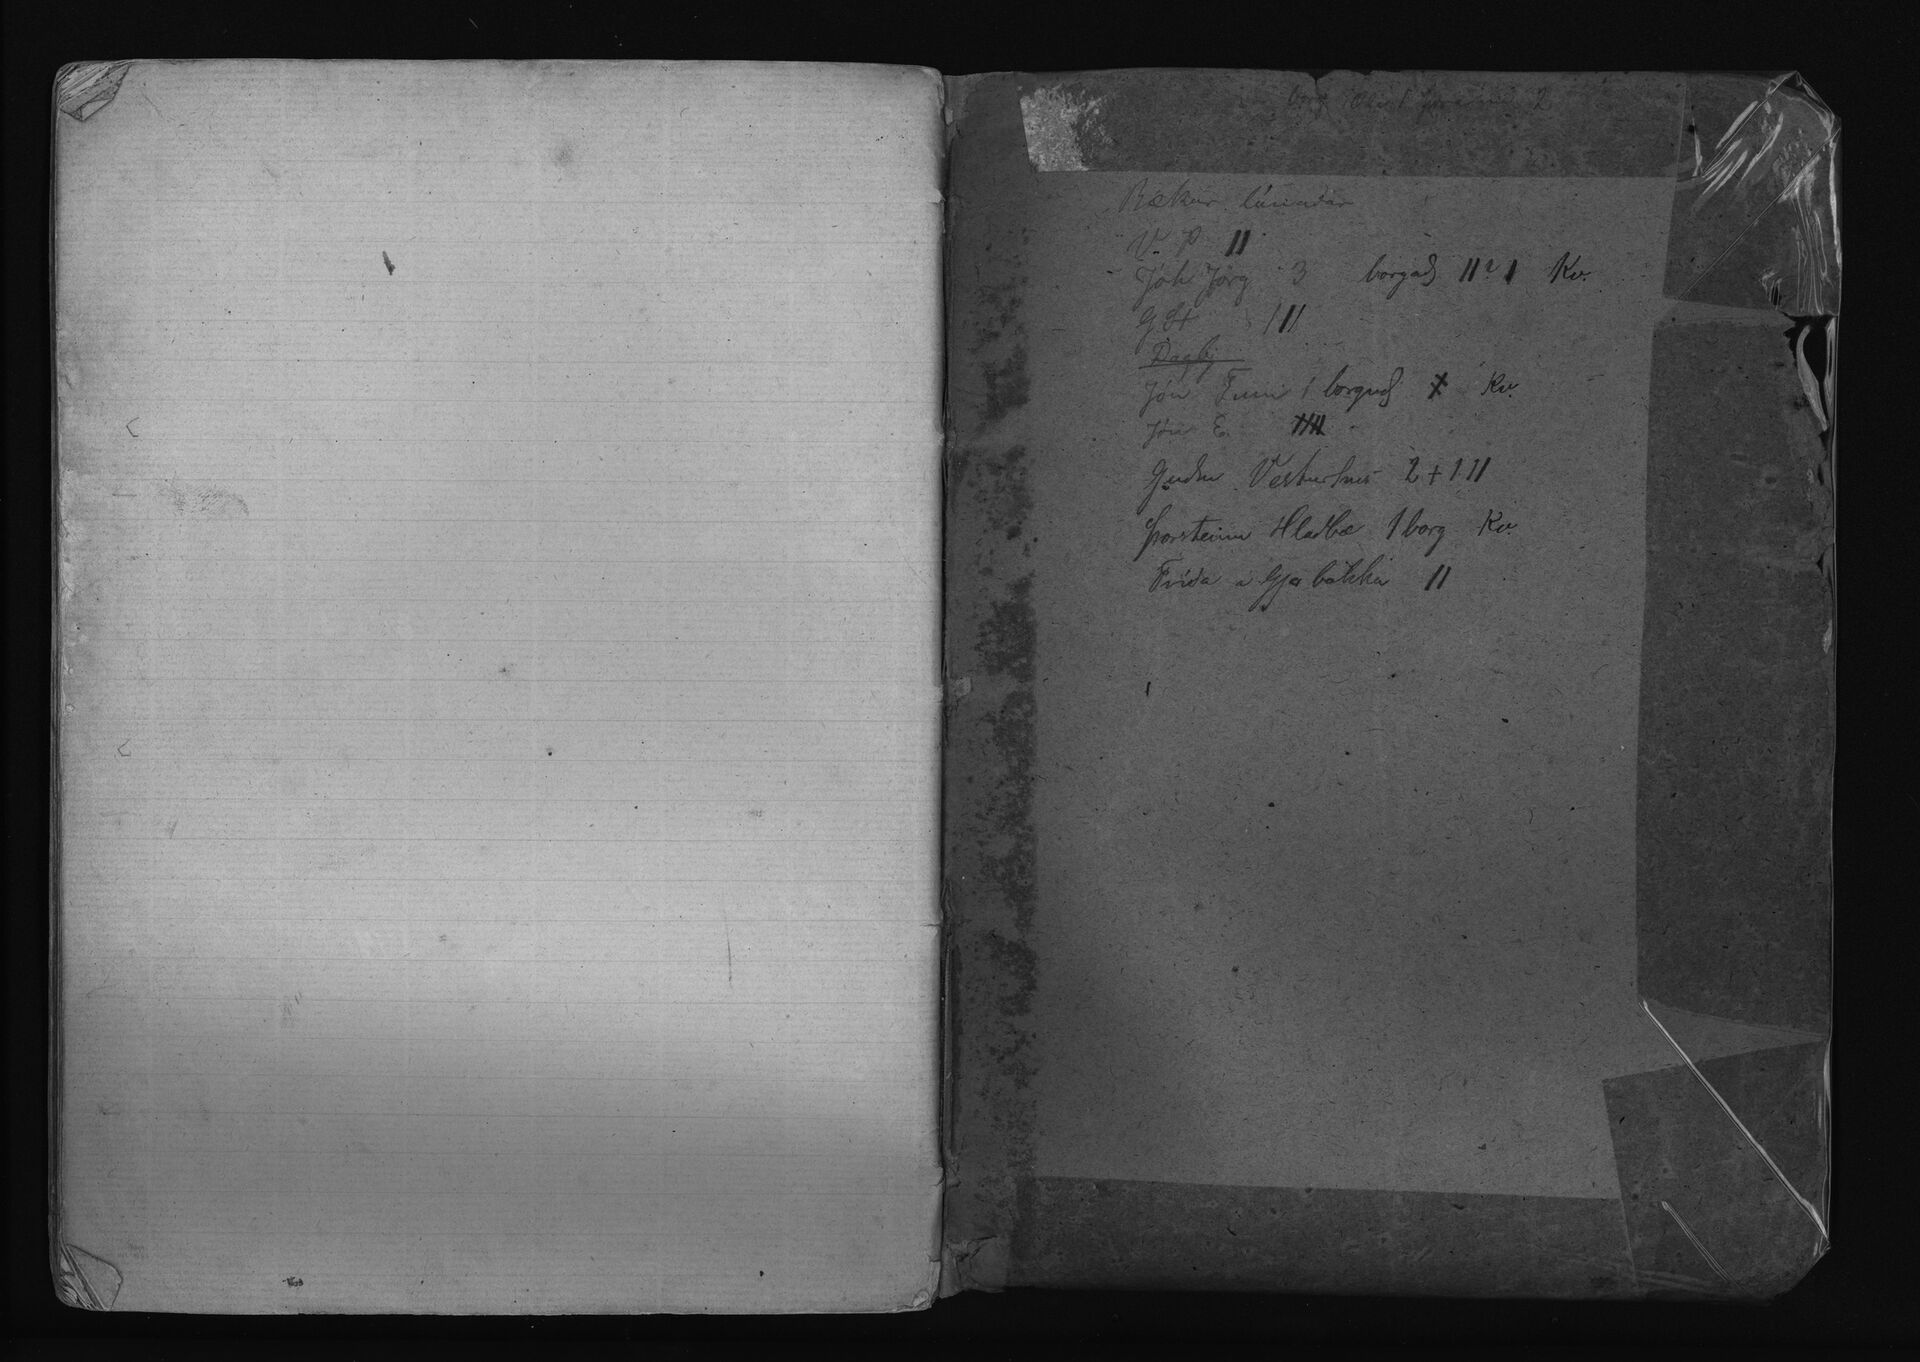 2
Bækur lánaðar
V. P. II
Jóh Jörg 3 borgað II 2 I Kv.
G St III
Dagbj
Jón Finn 1 borguð X Kv.
Jón E. IIII
Guðm Vesturhús 2 + 1 II
Þorsteinn Hlaðbæ 1 borg Kv.
Fríða á Gjábakka II